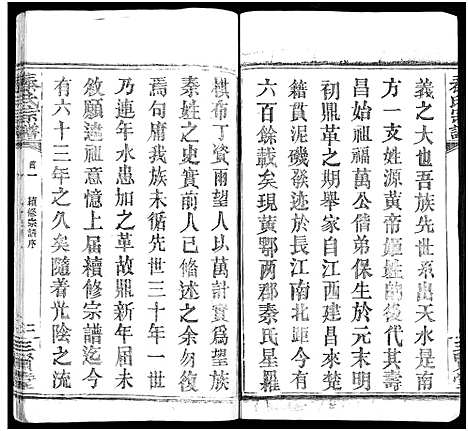 義之大也吾族先世系出天水是南
方一支姓源黄帝姬姓的後代其壽
昌始祖福萬公偕弟保生於元末明
初鼎革之期舉家自江西建昌來楚
籍貫泥磯長江南北距今有
六百餘載矣現黄鄂两郡秦氏星羅
棋布丁資兩望人以萬計實爲望族
秦姓之史實前人已修述之余勿復
焉句庸我族未循先世三十年一世
乃連年水患加之革故鼎新年届未
敘願違祖意憶上届續修宗譜迄今
有六十三年之久矣隨着光陰之流
秦氏宗譜
首一
續修宗譜序
三賢堂